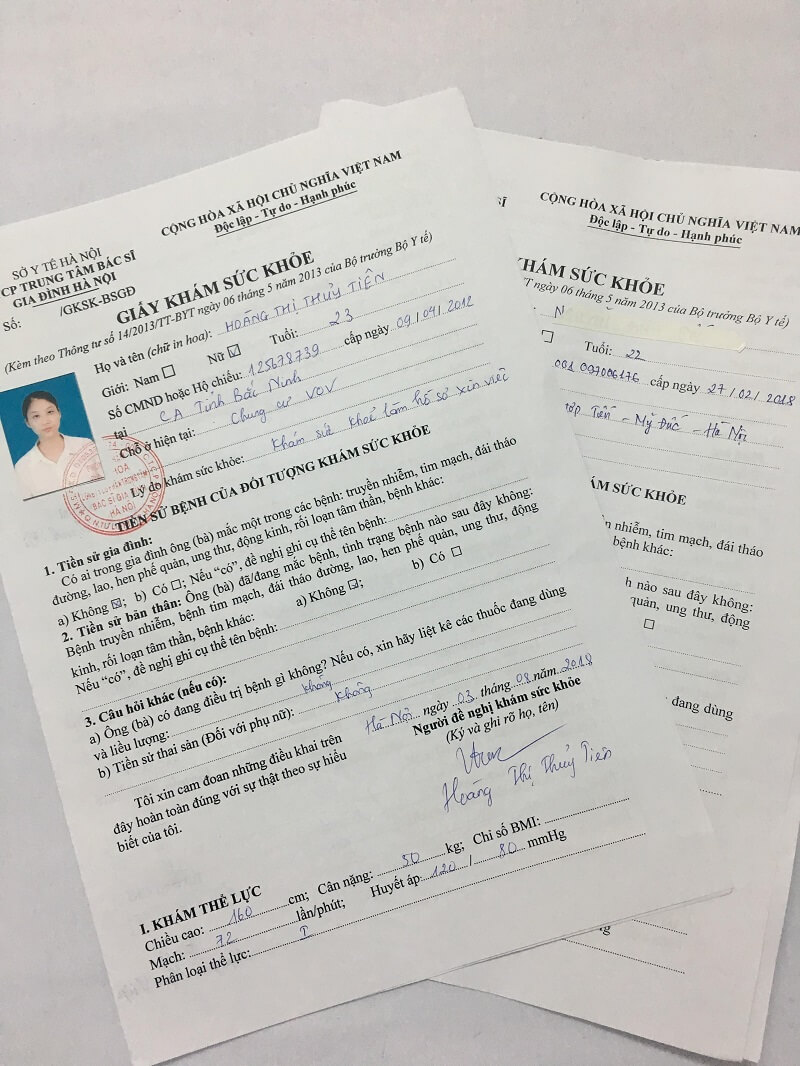 CỘNG HÒA XÃ HỘI CHỦ NGHĨA VIỆT NAM
Độc lập - Tự do - Hạnh phúc
SỞ Y TẾ HÀ NỘI
CP TRUNG TÂM BÁC SĨ
GIA ĐÌNH HÀ NỘI
Số: /GKSK-BSGĐ
GIẤY KHÁM SỨC KHỎE
(Kèm theo Thông tư số 14/2013/TT-BYT ngày 06 tháng 5 năm 2013 của Bộ trưởng Bộ Y tế)
Họ và tên (chữ in hoa): HOÀNG THỊ THỦY TIÊN
Giới: Nam ☐ Nữ ☑ Tuổi: 23
Số CMND hoặc Hộ chiếu: 125678739 cấp ngày 09/04/2012
tại CA Tỉnh Bắc Ninh
Chỗ ở hiện tại: Chung cư VOV
Lý do khám sức khỏe: Khám sức khoẻ làm hồ sơ xin việc
BÁC SĨ GIA
HÀ NỘI
TIỀN SỬ BỆNH CỦA ĐỐI TƯỢNG KHÁM SỨC KHỎE
1. Tiền sử gia đình:
Có ai trong gia đình ông (bà) mắc một trong các bệnh: truyền nhiễm, tim mạch, đái tháo
đường, lao, hen phế quản, ung thư, động kinh, rối loạn tâm thần, bệnh khác:
a) Không ☒; b) Có ☐; Nếu “có”, đề nghị ghi cụ thể tên bệnh:
2. Tiền sử bản thân: Ông (bà) đã/đang mắc bệnh, tình trạng bệnh nào sau đây không:
Bệnh truyền nhiễm, bệnh tim mạch, đái tháo đường, lao, hen phế quản, ung thư, động
kinh, rối loạn tâm thần, bệnh khác: a) Không ☑; b) Có ☐
Nếu “có”, đề nghị ghi cụ thể tên bệnh:
3. Câu hỏi khác (nếu có):
a) Ông (bà) có đang điều trị bệnh gì không? Nếu có, xin hãy liệt kê các thuốc đang dùng
và liều lượng: Không
b) Tiền sử thai sản (Đối với phụ nữ): Không
Hà Nội ngày 03 tháng 08 năm 2018
Người đề nghị khám sức khỏe
(Ký và ghi rõ họ, tên)
Tôi xin cam đoan những điều khai trên
đây hoàn toàn đúng với sự thật theo sự hiểu
biết của tôi.
Hoàng Thị Thủy Tiên
I. KHÁM THỂ LỰC
Chiều cao: 160 cm; Cân nặng: 50 kg; Chỉ số BMI:
Mạch: 72 lần/phút; Huyết áp: 120 / 80 mmHg
Phân loại thể lực: I
SĨ
CỘNG HÒA XÃ HỘI CHỦ NGHĨA VIỆT NAM
Độc lập - Tự do - Hạnh phúc
KHÁM SỨC KHỎE
YT ngày 06 tháng 5 năm 2013 của Bộ trưởng Bộ Y tế)
N
☐ Tuổi: 22
001 097006176 cấp ngày 27/02/2018
Tiến - Mỹ Đức - Hà Nội
ÁM SỨC KHỎE
n nhiễm, tim mạch, đái tháo
bệnh khác:
h nào sau đây không:
quản, ung thư, động
☐
đang dùng